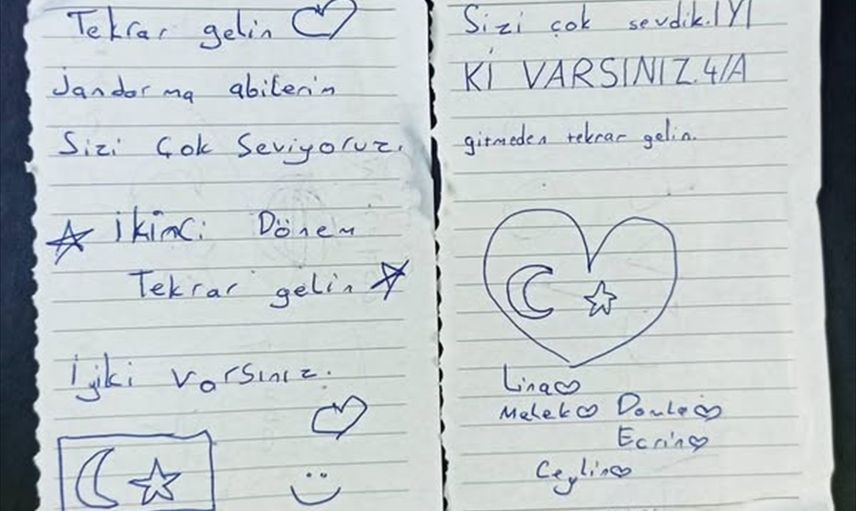 Tekrar gelin
Jandarma abilerim
Sizi Çok Seviyoruz.
İkinci Dönem
Tekrar gelin
İyiki varsınız.
Sizi çok sevdik. İYİ
Kİ VARSINIZ. 4/A
gitmeden tekrar gelin.
Lina
Melek Damla
Ecrin
Ceylin